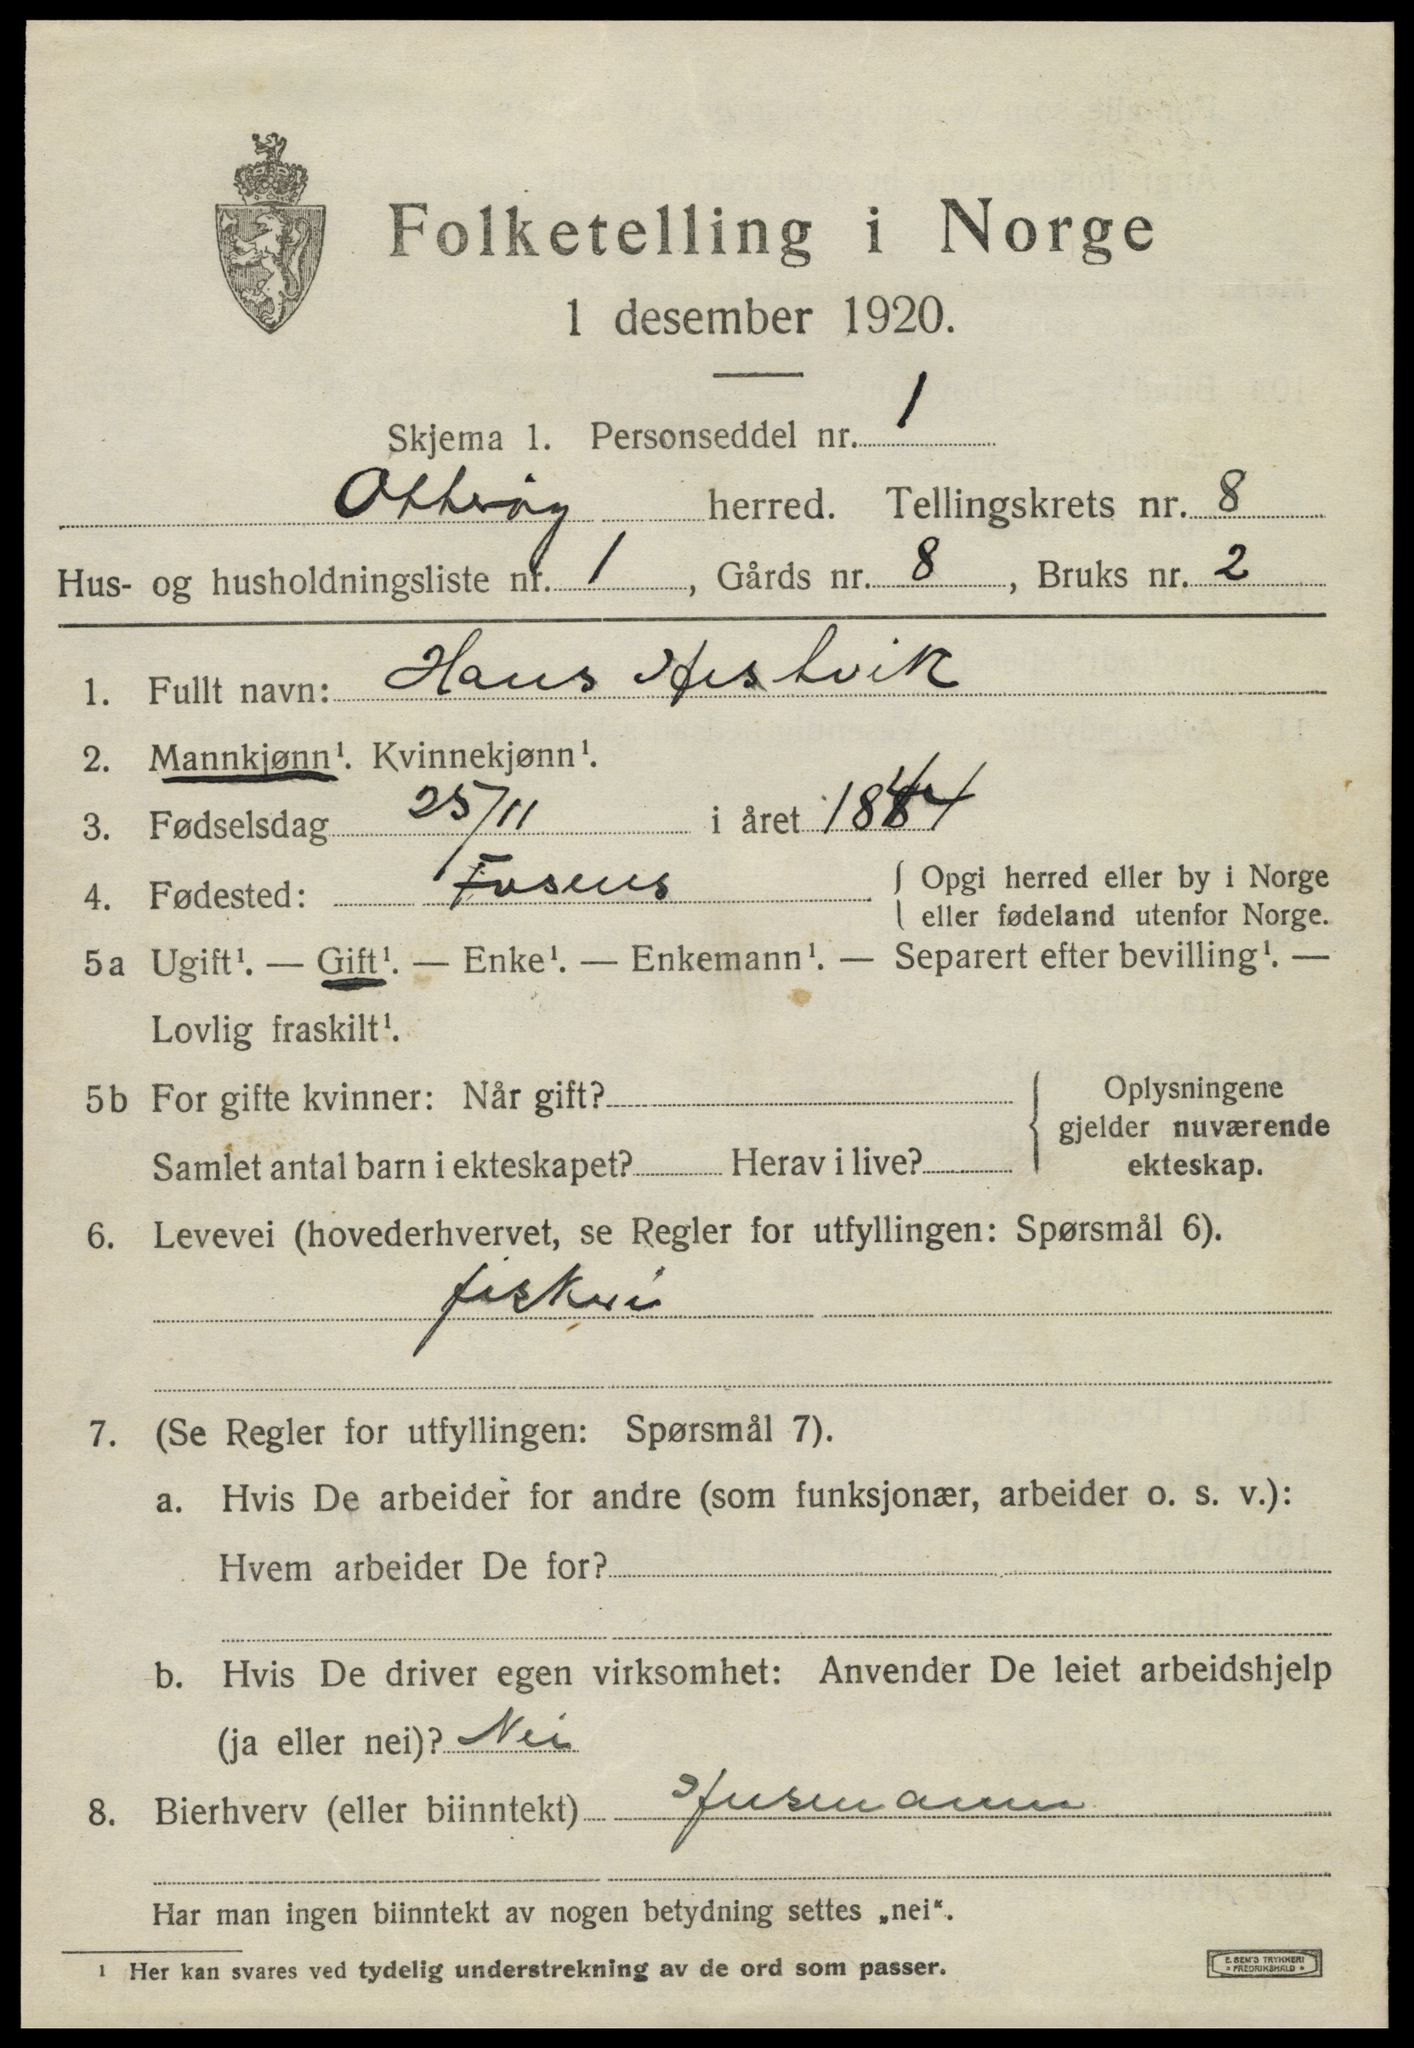 Folketelling i Norge
1 desember 1920.
Skjema 1. Personseddel nr. 1
Otterøy herred. Tellingskrets nr. 8
Hus- og husholdningsliste nr. 1, Gårds nr. 8, Bruks nr. 2
1. Fullt navn: Hans Hestvik
2. Mannkjønn¹. Kvinnekjønn¹.
3. Fødselsdag 25/11 i året 1844
4. Fødested: Fosnes { Opgi herred eller by i Norge
eller fødeland utenfor Norge.
5a Ugift¹. — Gift¹. — Enke¹. — Enkemann¹. — Separert efter bevilling¹. —
Lovlig fraskilt¹.
5b For gifte kvinner: Når gift? { Oplysningene
gjelder nuværende
Samlet antal barn i ekteskapet? Herav i live? ekteskap.
6. Levevei (hovederhvervet, se Regler for utfyllingen: Spørsmål 6).
fiskeri
7. (Se Regler for utfyllingen: Spørsmål 7).
a. Hvis De arbeider for andre (som funksjonær, arbeider o. s. v.):
Hvem arbeider De for?
b. Hvis De driver egen virksomhet: Anvender De leiet arbeidshjelp
(ja eller nei)? Nei
8. Bierhverv (eller biinntekt) Husmann
Har man ingen biinntekt av nogen betydning settes „nei“.
¹ Her kan svares ved tydelig understrekning av de ord som passer.
E. SEM'S TRYKKERI
* FREDRIKSHALD *